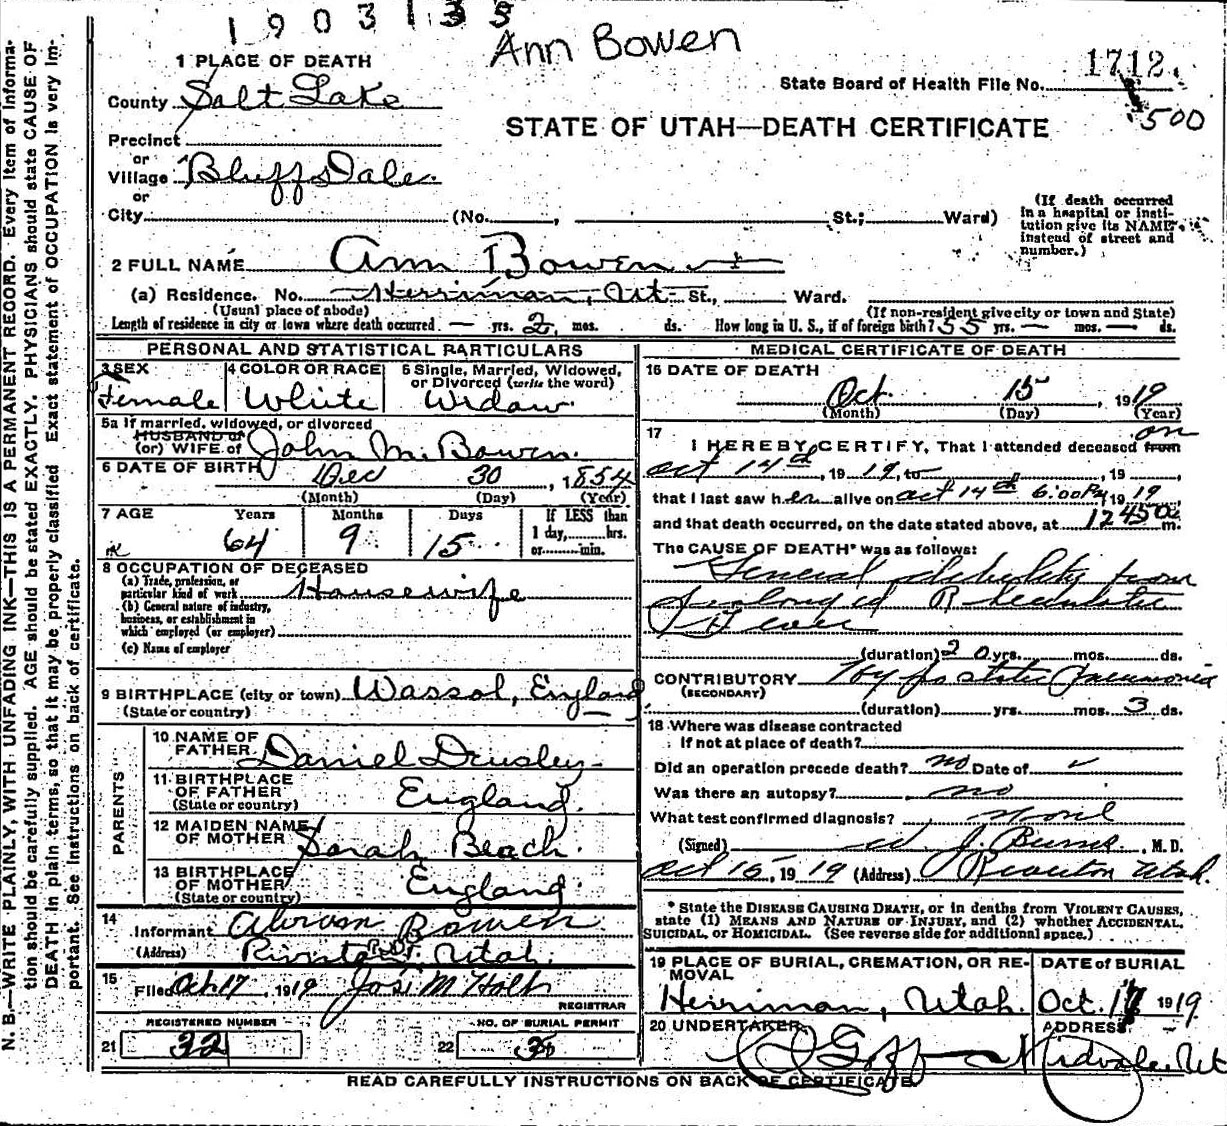 1903135
Ann Bowen
1712.
500
State Board of Health File No.
STATE OF UTAH—DEATH CERTIFICATE
1 PLACE OF DEATH
County Salt Lake
Precinct
or
Village Bluff Dale.
or
City (No. , St.; Ward)
(If death occurred in a hospital or insti-
tution give its NAME
instead of street and
number.)
2 FULL NAME Ann Bowen
(a) Residence. No. Herriman, Ut. St., Ward.
(Usual place of abode) (If non-resident give city or town and State)
Length of residence in city or town where death occurred — yrs. 2 mos. ds. How long in U. S., if of foreign birth? 55 yrs. — mos. — ds.
PERSONAL AND STATISTICAL PARTICULARS
3 SEX 4 COLOR OR RACE 5 Single, Married, Widowed,
or Divorced (write the word)
Female White Widow
5a If married, widowed, or divorced
HUSBAND of
(or) WIFE of John M. Bowen.
6 DATE OF BIRTH Dec 30, 1854
(Month) (Day) (Year)
7 AGE Years Months Days If LESS than
1 day, hrs.
or min.
64 9 15
8 OCCUPATION OF DECEASED
(a) Trade, profession, or
particular kind of work Housewife
(b) General nature of industry,
business, or establishment in
which employed (or employer)
(c) Name of employer
9 BIRTHPLACE (city or town) Wassal, England
(State or country)
PARENTS
10 NAME OF
FATHER Daniel Dousley
11 BIRTHPLACE
OF FATHER England.
(State or country)
12 MAIDEN NAME
OF MOTHER Sarah Beach.
13 BIRTHPLACE
OF MOTHER England
(State or country)
14
Informant Bowen
(Address) Riverton R.D. Utah.
15
Filed Oct 17, 1919 Jos. M Holt
REGISTRAR
REGISTERED NUMBER NO. OF BURIAL PERMIT
21 32 22
MEDICAL CERTIFICATE OF DEATH
16 DATE OF DEATH
Oct. 15, 1919
(Month) (Day) (Year)
17 on
I HEREBY CERTIFY, That I attended deceased from
Oct 14th, 1919, to , 19
that I last saw her alive on Oct 14th 6:00 PM 1919
and that death occurred, on the date stated above, at 12 45 a m.
The CAUSE OF DEATH* was as follows:
General debility from
prolonged Rheumatic
Fever
(duration) 20 yrs. mos. ds.
CONTRIBUTORY Hypostatic Pneumonia
(SECONDARY)
(duration) yrs. mos. 3 ds.
18 Where was disease contracted
If not at place of death?
Did an operation precede death? no Date of
Was there an autopsy? no
What test confirmed diagnosis? none
(Signed) , M. D.
Oct 15, 1919 (Address) Riverton Utah.
* State the DISEASE CAUSING DEATH, or in deaths from VIOLENT CAUSES,
state (1) MEANS AND NATURE OF INJURY, and (2) whether ACCIDENTAL,
SUICIDAL, or HOMICIDAL. (See reverse side for additional space.)
19 PLACE OF BURIAL, CREMATION, OR RE-
MOVAL DATE of BURIAL
Herriman, Utah. Oct. 17 1919
20 UNDERTAKER ADDRESS
Goff Midvale, Ut
READ CAREFULLY INSTRUCTIONS ON BACK OF CERTIFICATE.
N. B—WRITE PLAINLY, WITH UNFADING INK—THIS IS A PERMANENT RECORD. Every item of informa-
tion should be carefully supplied. AGE should be stated EXACTLY. PHYSICIANS should state CAUSE OF
DEATH in plain terms, so that it may be properly classified. Exact statement of OCCUPATION is very im-
portant. See instructions on back of certificate.